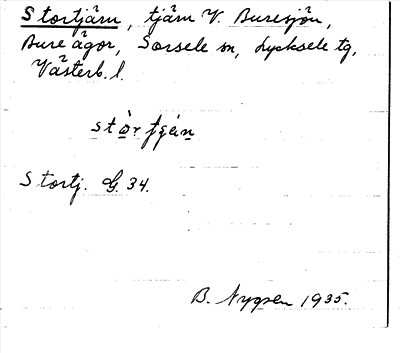 Stortjärn, tjärn V. Buresjön,
Bure ägor, Sorsele sn, Lycksele tg,
Västerb. l.
Stortj. G. 34.
B. 1935.